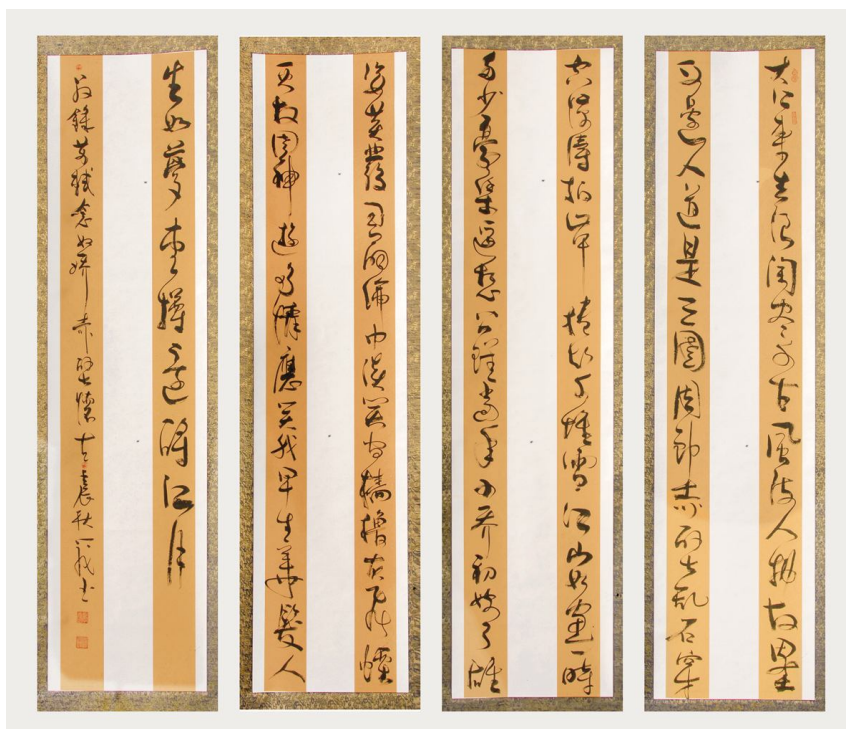 大江東去浪淘盡千古風流人物故壘
西邊人道是三國周郎赤壁亂石穿
空驚濤拍岸捲起千堆雪江山如畫一時
多少豪傑遥想公瑾當年小喬初嫁了雄
姿英發羽扇綸巾談笑間檣櫓灰飛煙
灭故國神遊多情應笑我早生華髮人
生如夢壹樽還酹江月
錄蘇軾念奴嬌赤壁懷古壬辰秋